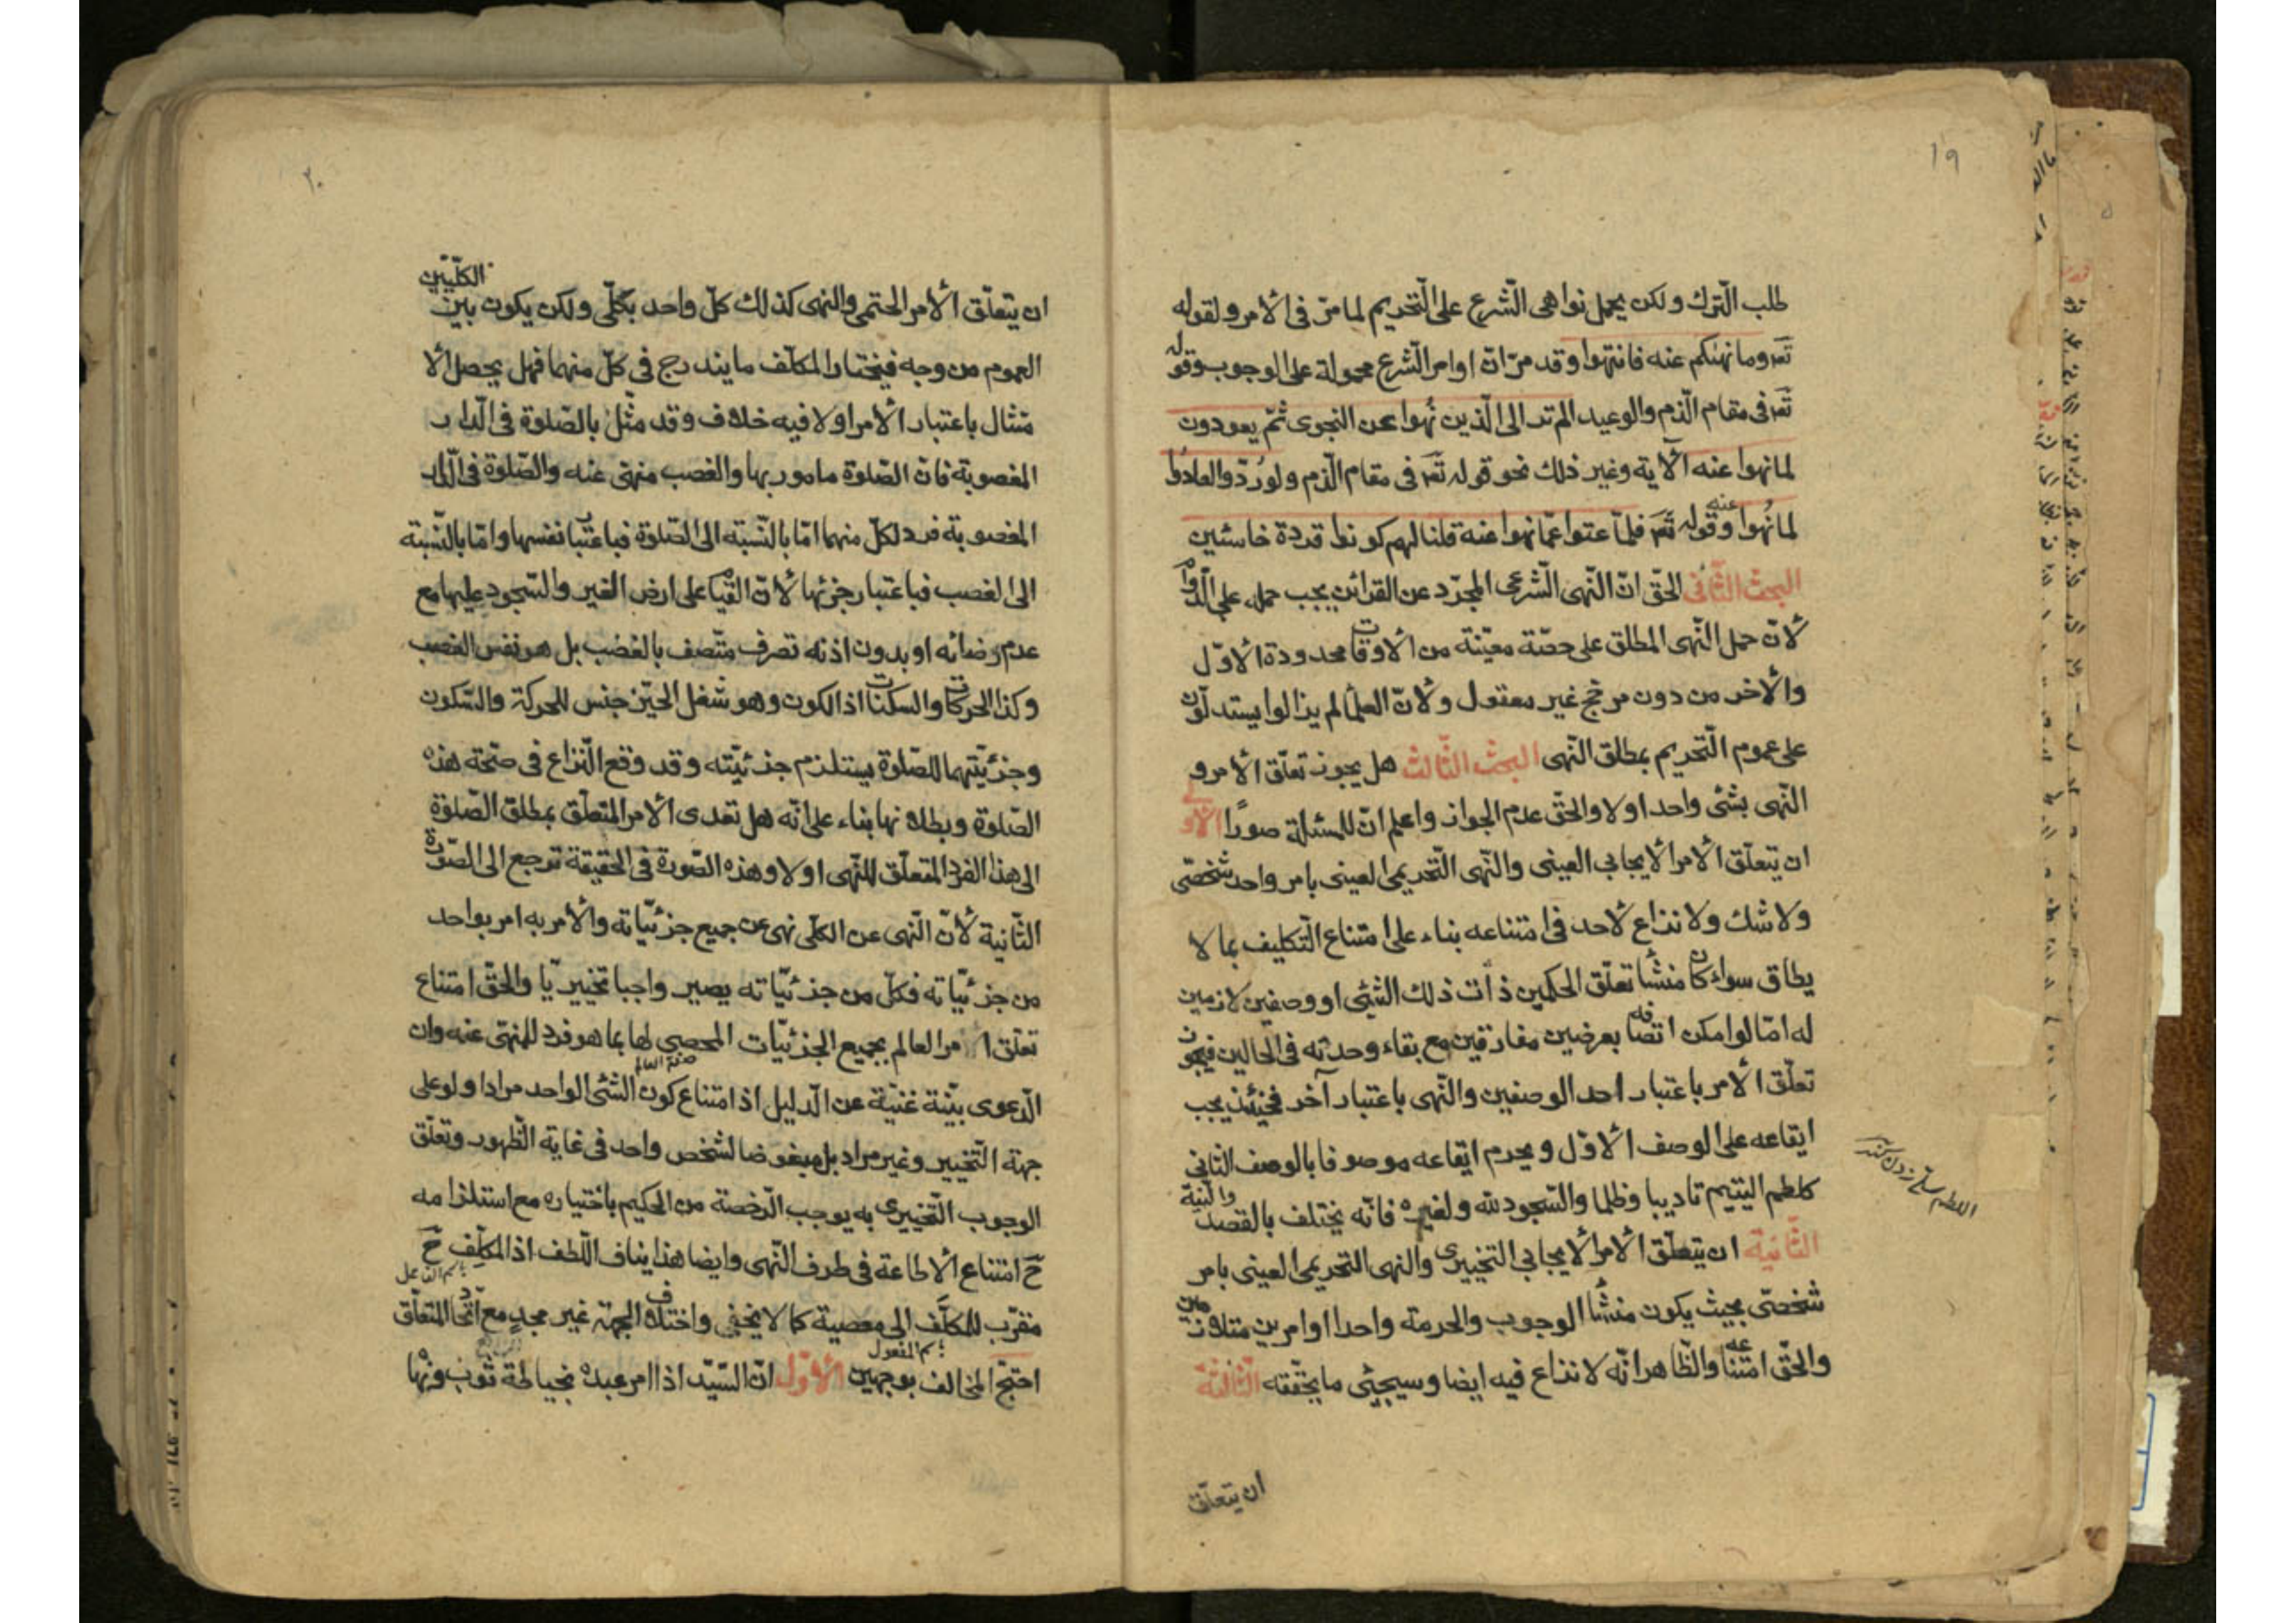 ١٩
طلب الترك ولكن يحمل نواهى الشرع على التحريم لما مرّ فى الامر ولقوله
تعـ وما نهيكم عنه فانتهوا وقد مرّ انّ اوامر الشرع محمولة على الوجوب وقوله
تعـ فى مقام الذم والوعيد الم تر الى الذين نُهوا عن النجوى ثمّ يعودون
لما نهوا عنه الآية وغير ذلك نحو قوله تعـ فى مقام الذم ولو رُدّوا لعادوا
لما نُهوا عنه وقوله تعـ فلمّا عتوا عمّا نهوا عنه قلنا لهم كونوا قردة خاسئين
البحث الثانى الحقّ انّ النّهى الشرعى المجرّد عن القرائن يجب حمله على الدوام
لانّ حمل النّهى المطلق على حصّة معيّنة من الاوقات محدودة الاوّل
والاخر من دون مرجّح غير معقول ولانّ العلماء لم يزالوا يستدلّون
على عموم التّحريم بمطلق النّهى البحث الثّالث هل يجوز تعلّق الامر و
النّهى بشئ واحد او لا والحقّ عدم الجواز واعلم انّ للمسئلة صورًا الاولى
ان يتعلّق الامر الايجابي العينى والنّهى التّحريمى العينى بامر واحد شخصّى
ولا شك ولا نزاع لاحد فى امتناعه بناء على امتناع التّكليف بما لا
يطاق سواء كان منشأ تعلّق الحكمين ذات ذلك الشئى او وصفين لازمين
له امّا لو امكن اتصافه بعرضين مفارقين مع بقاء وحدته فى الحالين فيجوز
تعلّق الامر باعتبار احد الوصفين والنّهى باعتبار آخر فحينئذ يجب
ايقاعه على الوصف الاوّل ويحرم ايقاعه موصوفا بالوصف الثانى
كلطم اليتيم تاديبا وظلما والسّجود لله ولغيره فانّه يختلف بالقصد والنية
الثّانية ان يتعلّق الامر الايجابي التخييرى والنهى التحريمى العينى بامر
شخصّى بحيث يكون منشأ الوجوب والحرمة واحدا او امرين متلازمين
والحقّ امتناعه والظّاهر انّه لا نزاع فيه ايضا وسيجئى ما يحقّقه الثّالثة
ان يتعلّق
٢٠
ان يتعلّق الامر الحتمى والنهى كذلك كلّ واحد بكلّى ولكن يكون بين الكلّيين
العموم من وجه فيختار المكلّف ما يندرج فى كلّ منهما فهل يحصل الا
متثال باعتبار الامر او لا فيه خلاف وقد مثّل بالصّلوة فى الدار
المغصوبة فانّ الصّلوة مامور بها والغصب منهى عنه والصّلوة فى الدّار
المغصوبة فرد لكلّ منهما امّا بالنّسبته الى الصّلوة فباعتبار نفسها وامّا بالنّسبة
الى الغصب فباعتبار جزئها لانّ القيام على ارض الغير والسّجود عليها مع
عدم رضائه او بدون اذنه تصرف متّصف بالغصب بل هو نفس الغصب
وكذا الحركات والسكنات اذ الكون وهو شغل الحيّز جنس للحركة والسّكون
وجزئيّتهما للصّلوة يستلزم جزئيّته وقد وقع النّزاع فى صحّة هذه
الصّلوة وبطلانها بناء على انّه هل تعدى الامر المتعلّق بمطلق الصّلوة
الى هذا الفرد المتعلّق للنّهى او لا وهذه الصّورة فى الحقيقة ترجع الى الصّورة
الثّانية لانّ النّهى عن الكلّى نهى عن جميع جزئيّاته والامر به امر بواحد
من جزئيّاته فكلّ من جزئيّاته يصير واجبا تخييريّا والحقّ امتناع
تعلّق امر العالم بجميع الجزئيّات المحصى لها بما هو فرد للمنهى عنه وان
صفة العالم
الدّعوى بيّنة غنيّة عن الدّليل اذ امتناع كون الشئى الواحد مرادا ولو على
جهة التّخيير وغير مراد بل مبغوضا لشخص واحد فى غاية الظّهور وتعلّق
الوجوب التّخييرى به يوجب الرّخصة من الحكيم باختياره مع استلزامه
حَ امتناع الاطاعة فى طرف النّهى وايضا هذا ينافى اللّطف اذ المكلّف حَ
مقرّب للمكلَّف الى معصية كما لا يخفى واختلاف الجهة غير مجدٍ مع اتّحاد المتعلّق
احتجّ المخالف بوجهين الاوّل انّ السّيّد اذا امر عبده بخياطة ثوب ونهاه